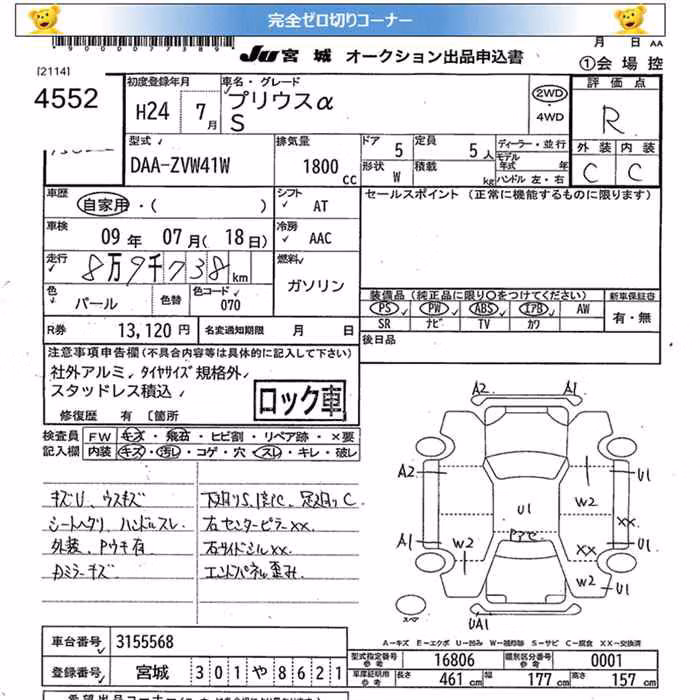 完全ゼロ切りコーナー
*9000007389*
JU 宮城 オークション出品申込書
月 日 AA
①会場控
[2114]
4552
初度登録年月
H24 7月
車名・グレード
プリウスα
S
2WD
・
4WD
評価点
R
外装 内装
C C
型式
DAA-ZVW41W
排気量
1800 cc
ドア 5
定員 5人
形状 W
積載 kg
ディーラー・並行
モデル年式 年
ハンドル 左・右
車歴
自家用・( )
シフト
AT
セールスポイント (正常に機能するものに限ります)
車検
09年 07月( 18日)
冷房
AAC
走行
8万9千738km
燃料
ガソリン
色
パール
色替
色コード
070
装備品(純正品に限り○をつけてください)
新車保証書
PS PW ABS エアB AW
SR ナビ TV カワ
有・無
R券 13,120円
名変通知期限 月 日
後日品
注意事項申告欄(不具合内容等は具体的に記入して下さい)
社外アルミ、タイヤサイズ規格外
スタッドレス積込
ロック車
修復歴 有 〔箇所
検査員
記入欄
FW キズ・飛石・ヒビ割・リペア跡・×要
内装 キズ・汚レ・コゲ・穴・スレ・キレ・破レ
キズU、ウスキズ
シートヘタリ、ハンドルスレ
外装、Pウキ有
Aミラーキズ
下廻りS、錆C、足廻りC
右センターピラーXX、
右サイドシルXX、
エンドパネル歪み
A2 A1
A2 U1
W2
U1
XX
A1 W2
アアセ
XX
W2 U1
UA1
スペア
A－キズ E－エクボ U－凹み W－補修跡 S－サビ C－腐食 XX－交換済
車台番号 3155568
登録番号 宮城 301 や 8621
型式指定番号 参考 16806
類別区分番号 参考 0001
車庫証明用 参考 長さ 461 cm 幅 177 cm 高さ 157 cm
希望出品コーナー